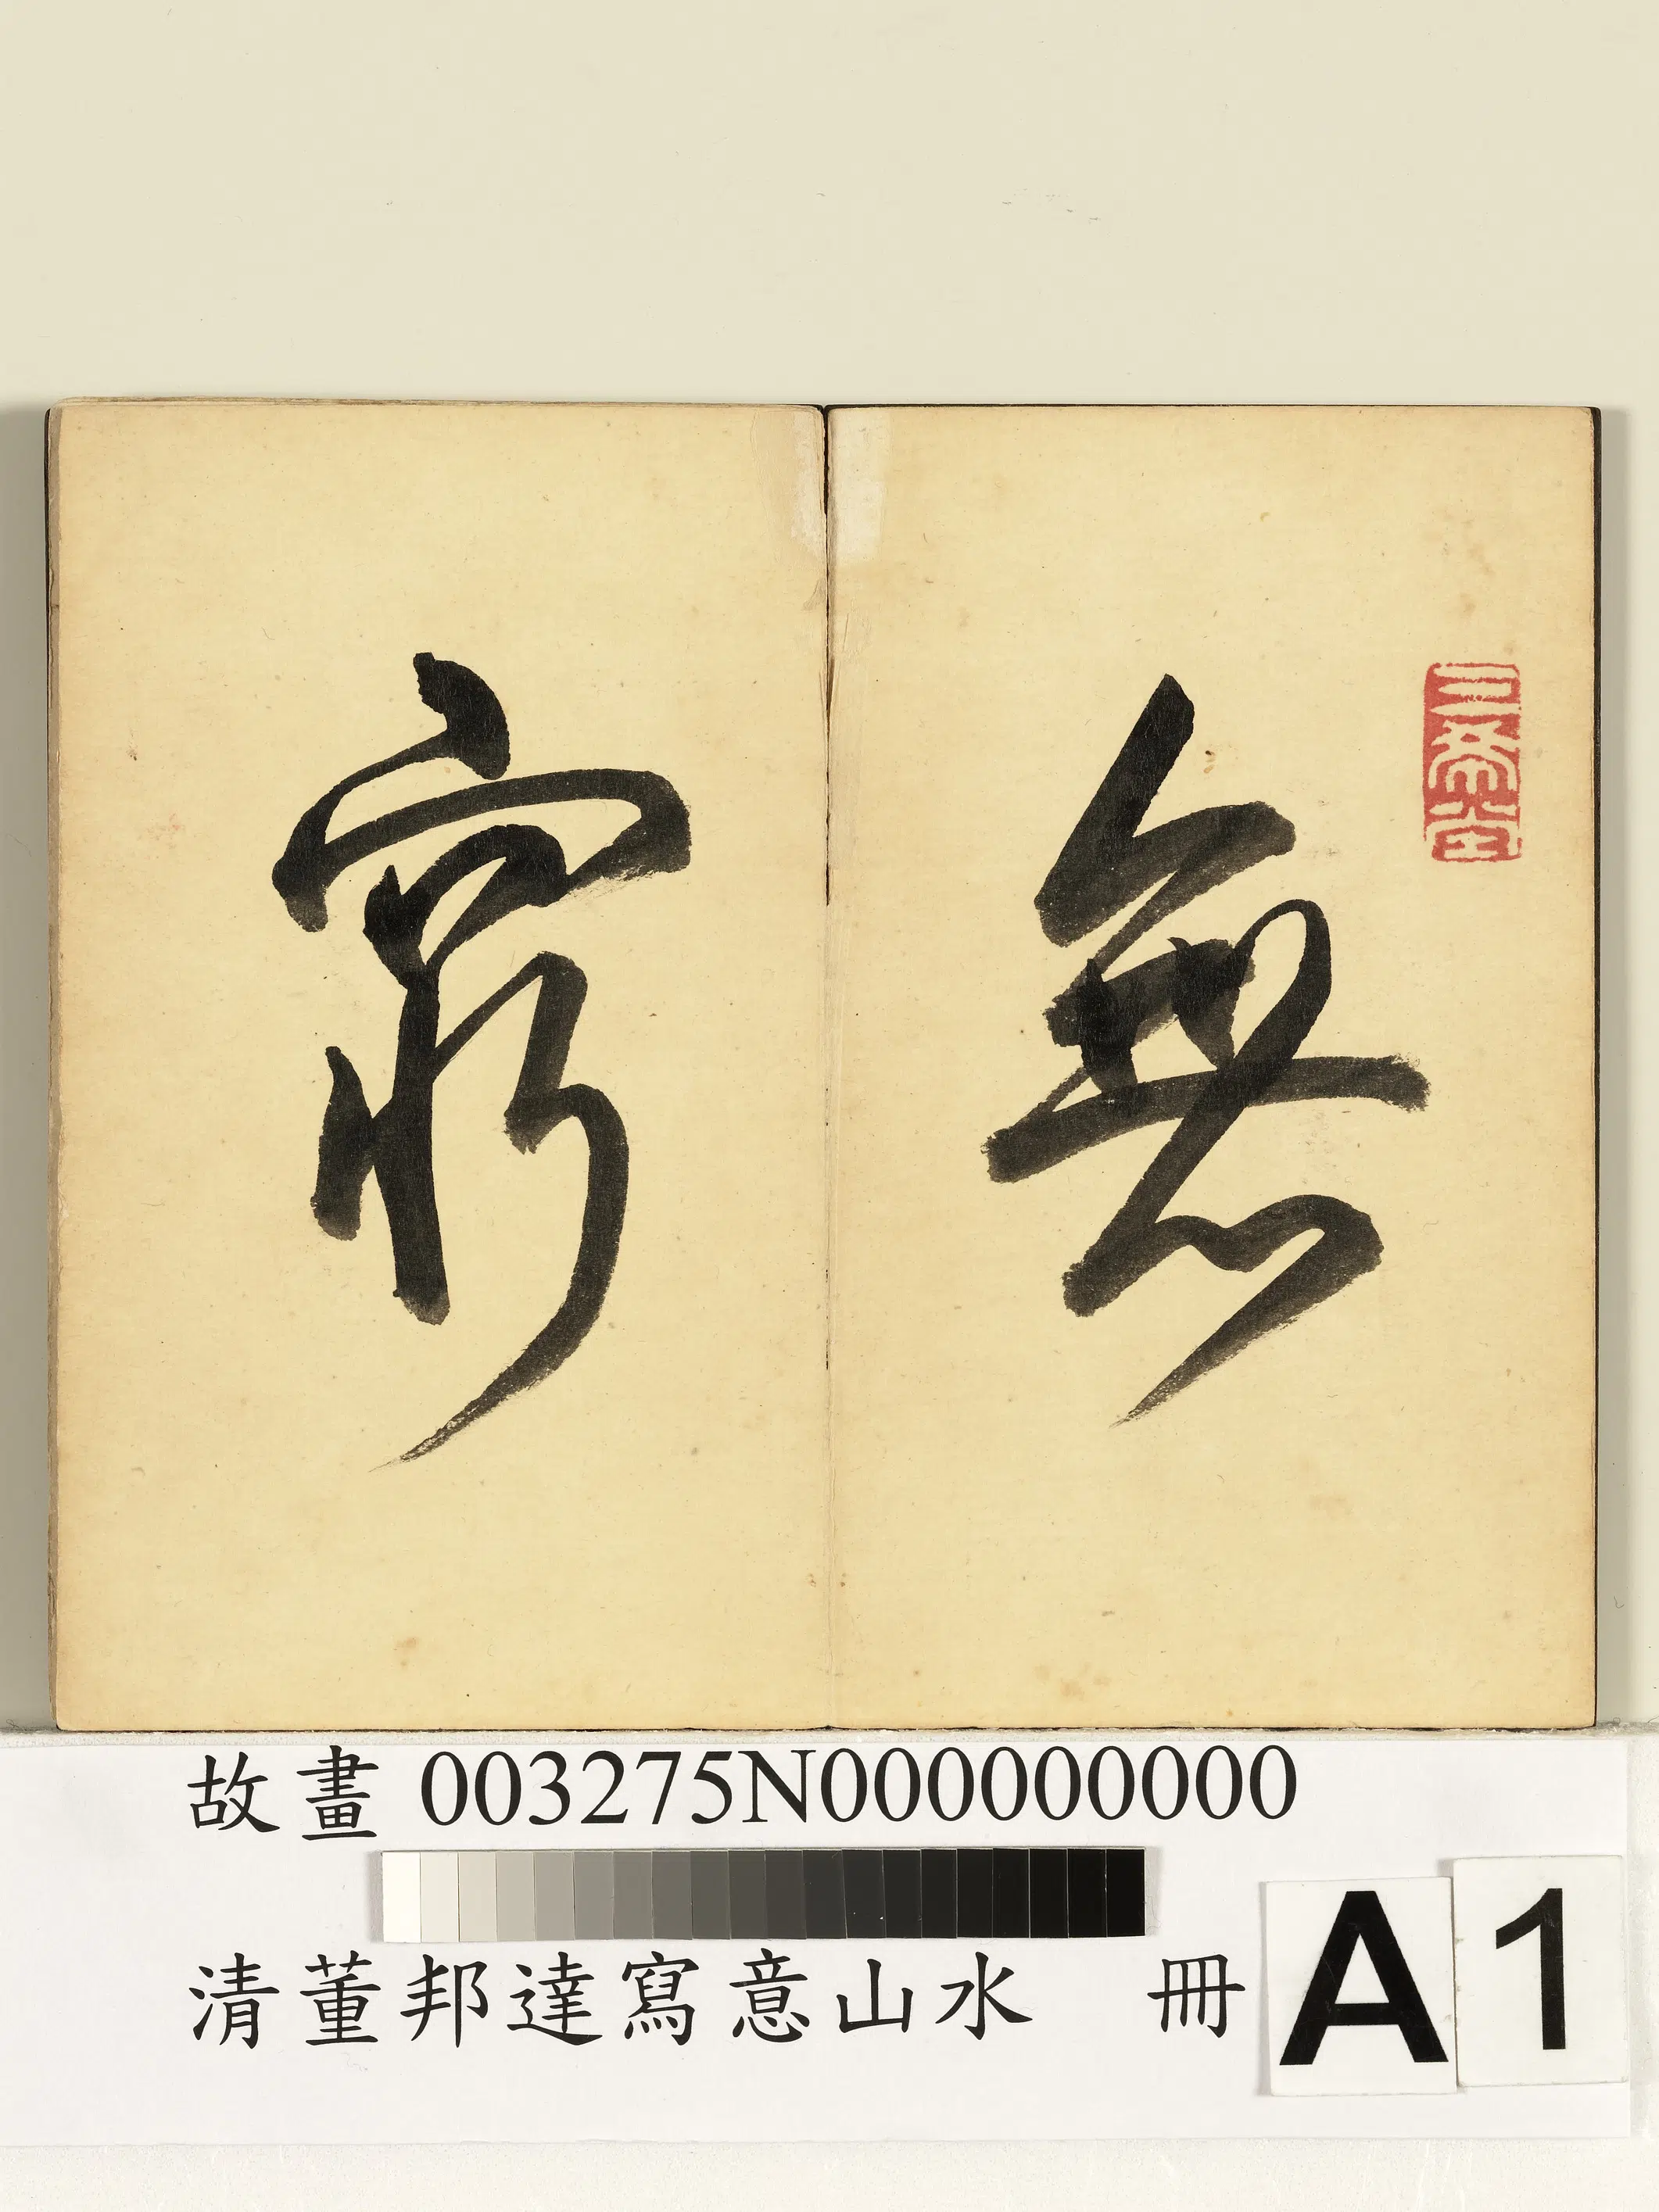 無窮
三希堂
故畫 003275N000000000
清董邦達寫意山水 冊
A 1